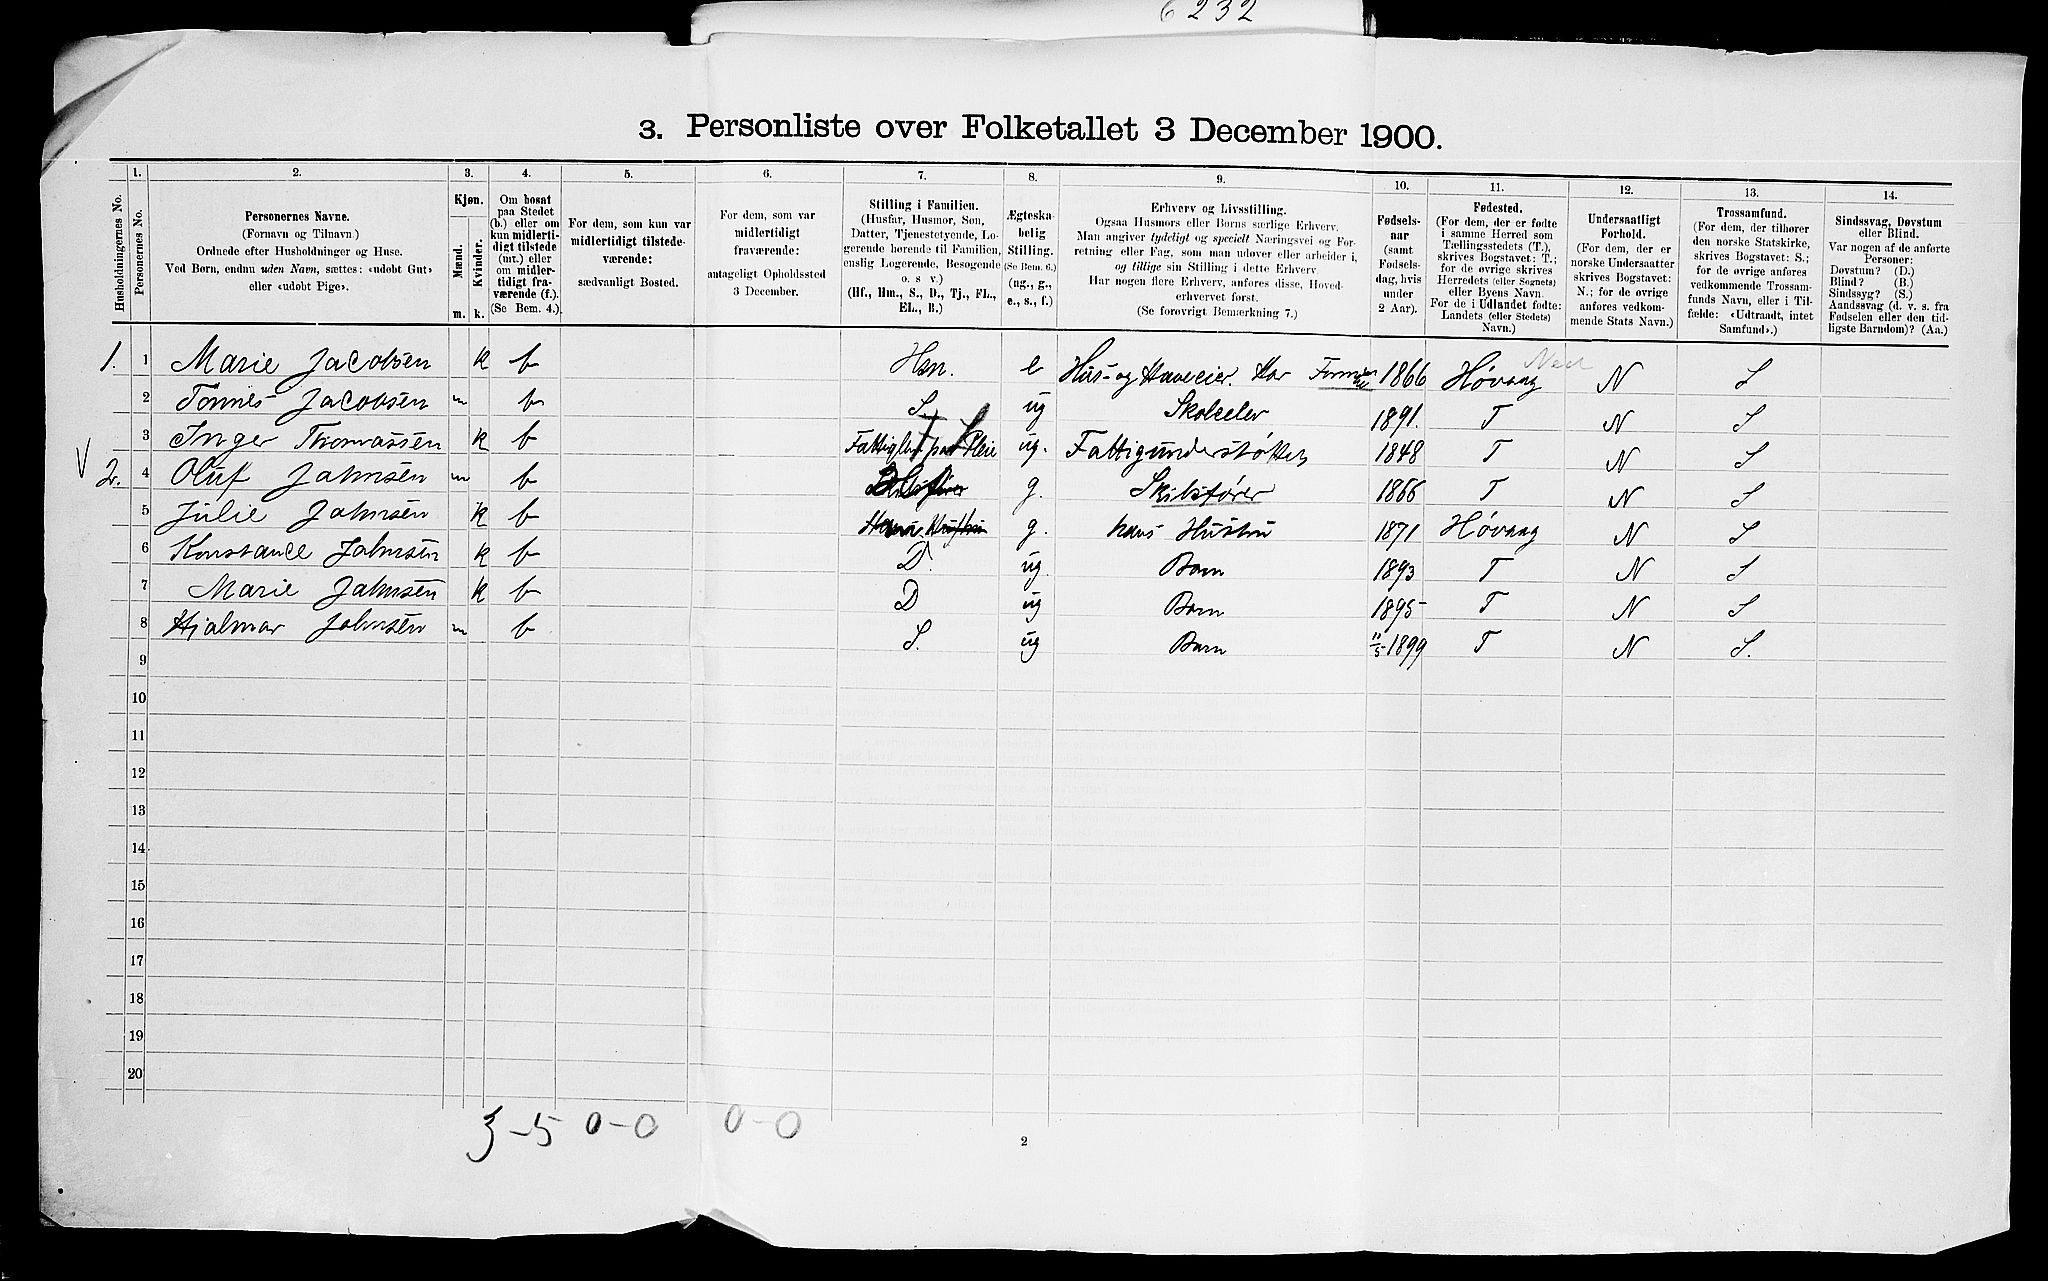 6232
3. Personliste over Folketallet 3 December 1900.
Husholdningernes No.
1.
Personernes No.
2.
Personernes Navne.
(Fornavn og Tilnavn.)
Ordnede efter Husholdninger og Huse.
Ved Børn, endnu uden Navn, sættes: «udøbt Gut»
eller «udøbt Pige».
3.
Kjøn.
Mænd.
Kvinder.
m. k.
4.
Om bosat
paa Stedet
(b.) eller om
kun midlerti-
digt tilstede
(mt.) eller
om midler-
tidigt fra-
værende (f.).
(Se Bem. 4.)
5.
For dem, som kun var
midlertidigt tilstede-
værende:
sædvanligt Bosted.
6.
For dem, som var
midlertidigt
fraværende:
antageligt Opholdssted
3 December.
7.
Stilling i Familien.
(Husfar, Husmor, Søn,
Datter, Tjenestetyende, Lo-
gerende hørende til Familien,
enslig Logerende, Besøgende
o. s v.)
(Hf., Hm., S., D., Tj., FL.,
EL., B.)
8.
Ægteska-
belig
Stilling.
(Se Bem. 6.)
(ug., g.,
e., s., f.)
9.
Erhverv og Livsstilling.
Ogsaa Husmors eller Børns særlige Erhverv.
Man angiver tydeligt og specielt Næringsvei og For-
retning eller Fag, som man udøver eller arbeider i,
og tillige sin Stilling i dette Erhverv.
Har nogen flere Erhverv, anføres disse, Hoved-
erhvervet først.
(Se forøvrigt Bemærkning 7.)
10.
Fødsels-
aar
(samt
Fødsels-
dag, hvis
under
2 Aar).
11.
Fødested.
(For dem, der er fødte
i samme Herred som
Tællingsstedets (T.),
skrives Bogstavet: T.;
for de øvrige skrives
Herredets (eller Sognets)
eller Byens Navn.
For de i Udlandet fødte:
Landets (eller Stedets)
Navn.)
12.
Undersaatligt
Forhold.
(For dem, der er
norske Undersaatter
skrives Bogstavet:
N.; for de øvrige
anføres vedkom-
mende Stats Navn.)
13.
Trossamfund.
(For dem, der tilhører
den norske Statskirke,
skrives Bogstavet: S.;
for de øvrige anføres
vedkommende Trossam-
funds Navn, eller i Til-
fælde: «Udtraadt, intet
Samfund».)
14.
Sindssvag, Døvstum
eller Blind.
Var nogen af de anførte
Personer:
Døvstum? (D.)
Blind? (B.)
Sindssyg? (S.)
Aandssvag (d. v. s. fra
Fødselen eller den tid-
ligste Barndom)? (Aa.)
1. 1 Marie Jacobsen k b Hm. e Hus- og Haveeier. Har 1866 Høvaag N S
2 Tønnes Jacobsen m b S. ug Skoleelev 1891. T N S
3 Inger Thomassen k b Fattiglem paa Pleie ug. Fattigunderstøttes 1848 T N S
V 2. 4 Oluf Jahnsen m b g. Skibsfører 1866 T N S
5 Julie Jahnsen k b Hans Hustru g. hans Hustru 1871 Høvaag N S
6 Konstance Jahnsen k b D. ug. Barn 1893 T N S
7 Marie Jahnsen k b D ug Barn 1895 T N S
8 Hjalmar Jahnsen m b S. ug Barn 11/5 1899 T N S.
9
10
11
12
13
14
15
16
17
18
19
20
3-5 0-0 0-0
2